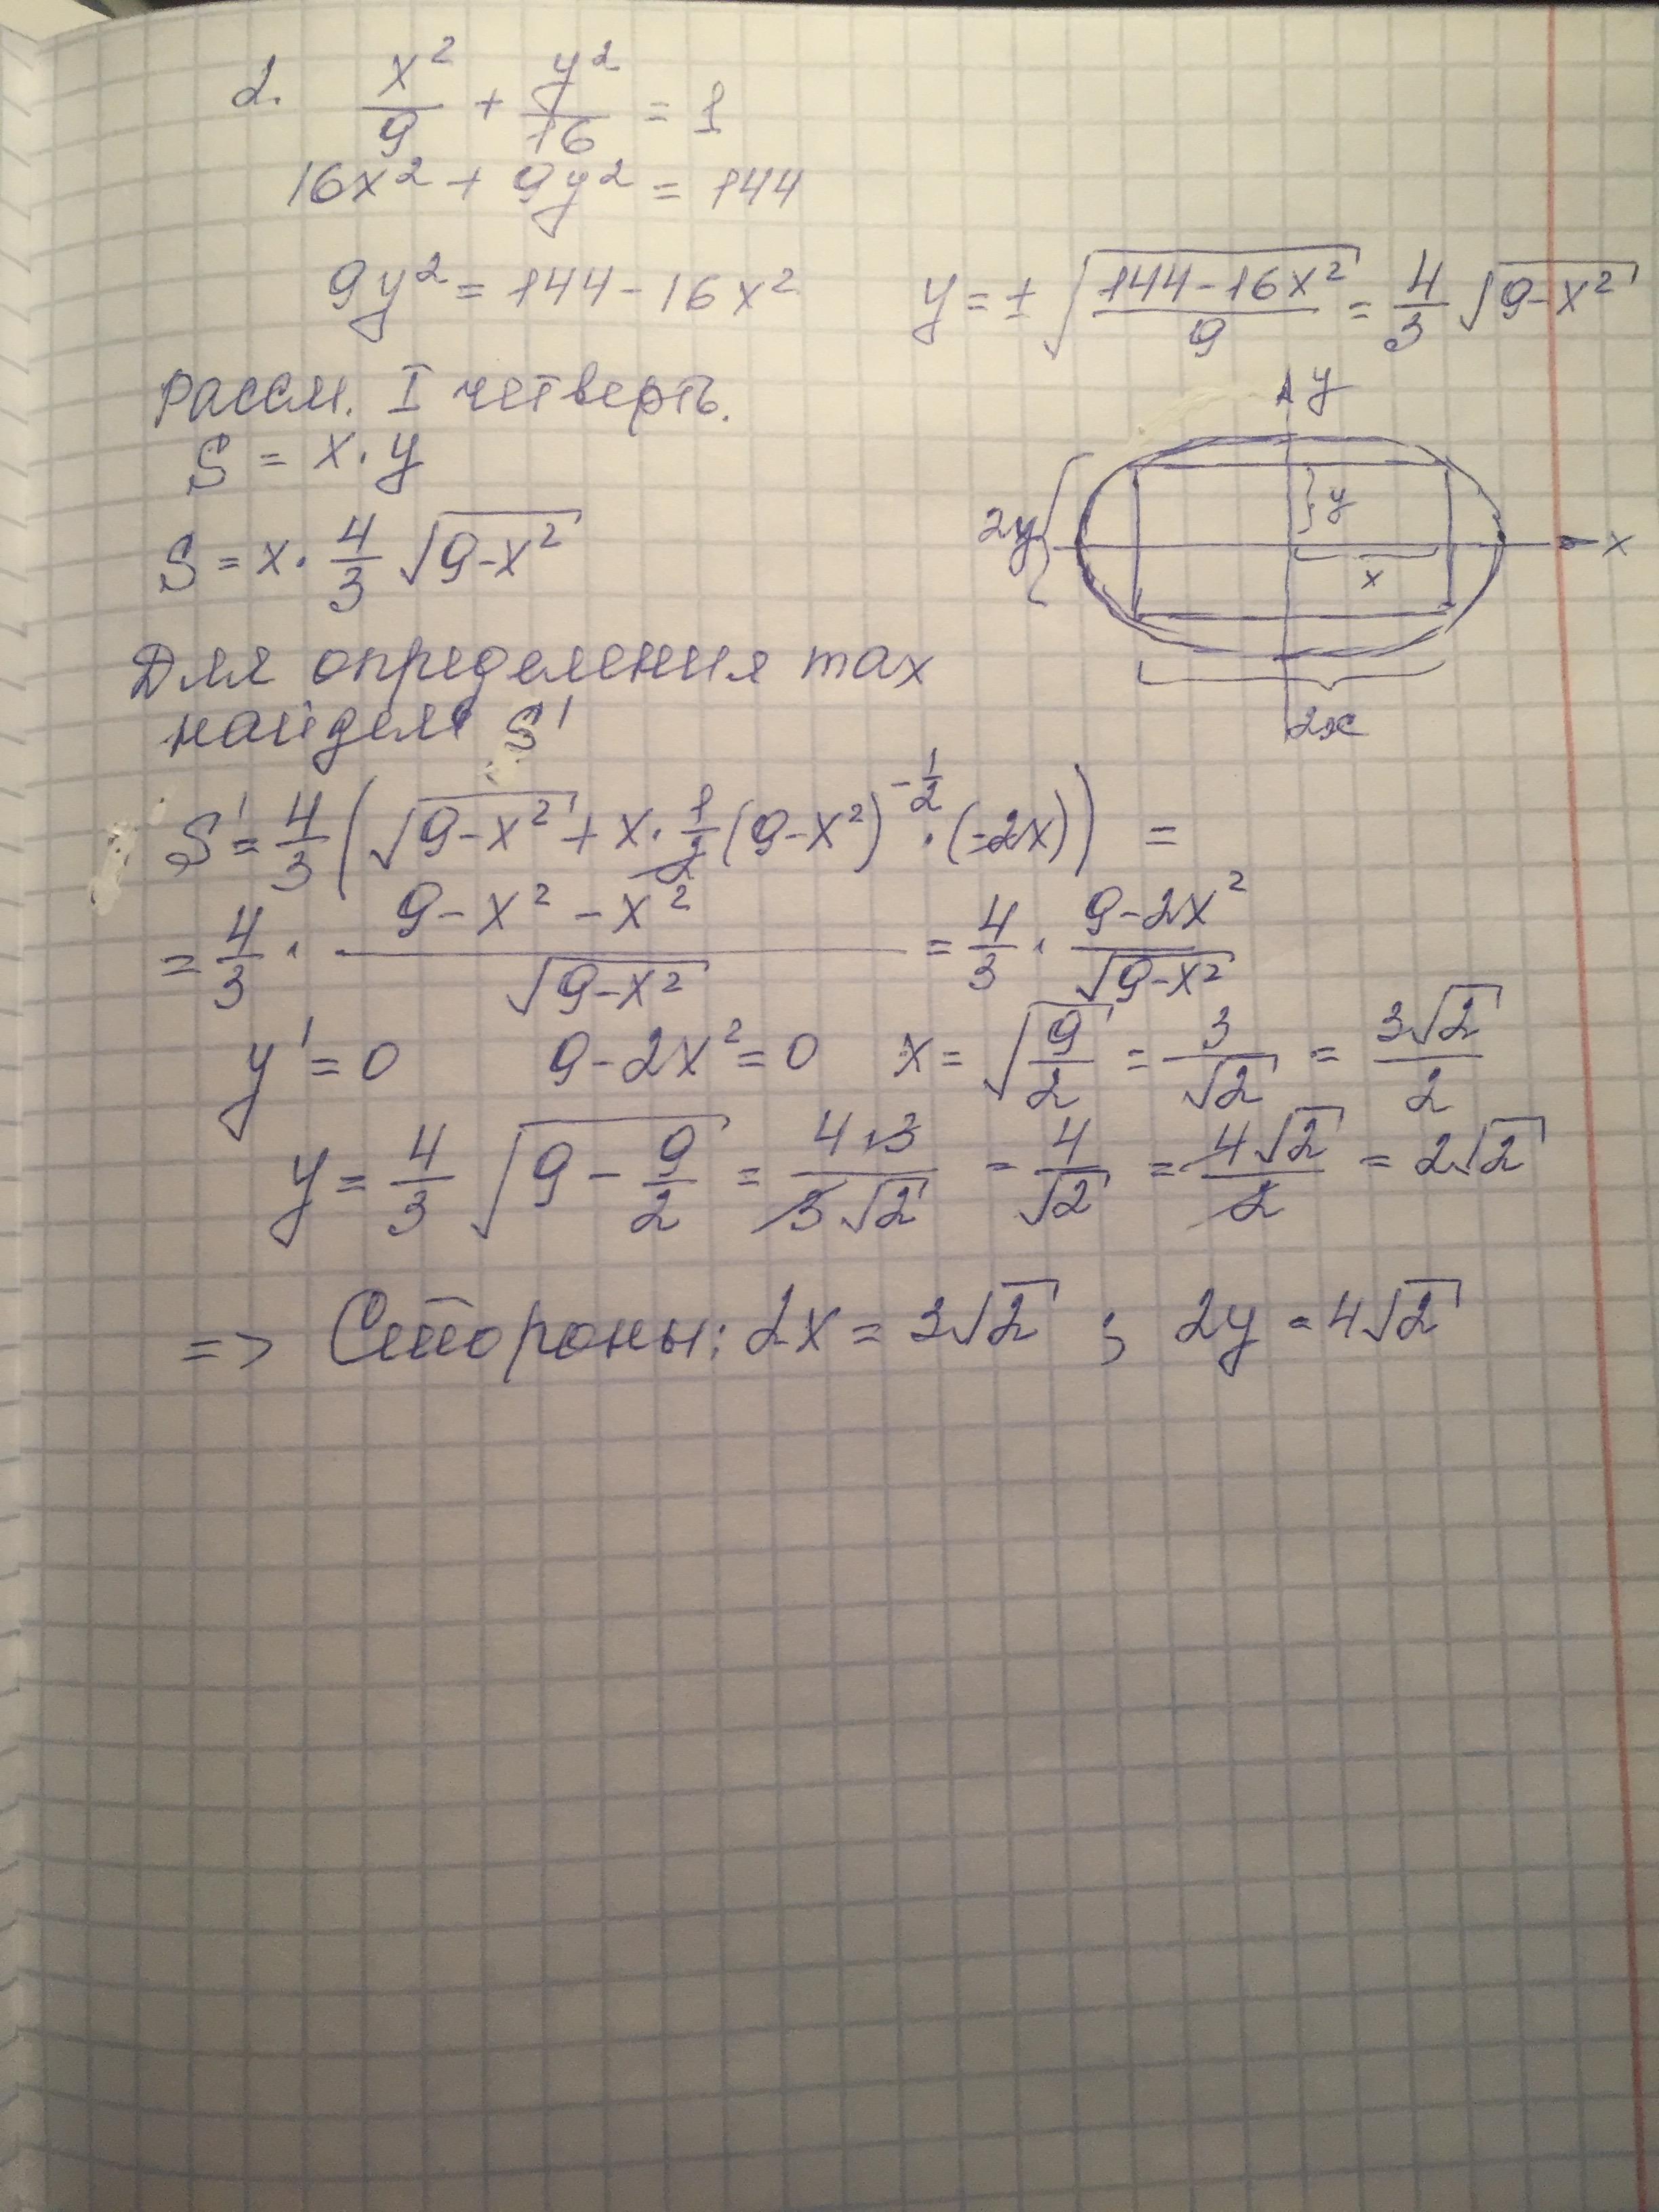 2. x²/9 + y²/16 = 1
16x² + 9y² = 144
9y² = 144 - 16x²   y = ± √((144-16x²)/9) = 4/3 √(9-x²)
Рассм. I четверть.
S = x · y
S = x · 4/3 √(9-x²)
y
y
2y
x
x
2x
Для определения max
найдем S'
S' = 4/3 (√(9-x²) + x · 1/2 (9-x²)^(-1/2) · (-2x)) =
= 4/3 · (9-x²-x²)/√(9-x²) = 4/3 · (9-2x²)/√(9-x²)
y' = 0   9-2x² = 0   x = √(9/2) = 3/√2 = 3√2/2
y = 4/3 √(9 - 9/2) = 4·3/(3√2) = 4/√2 = 4√2/2 = 2√2
=> Стороны: 2x = 3√2 ; 2y = 4√2